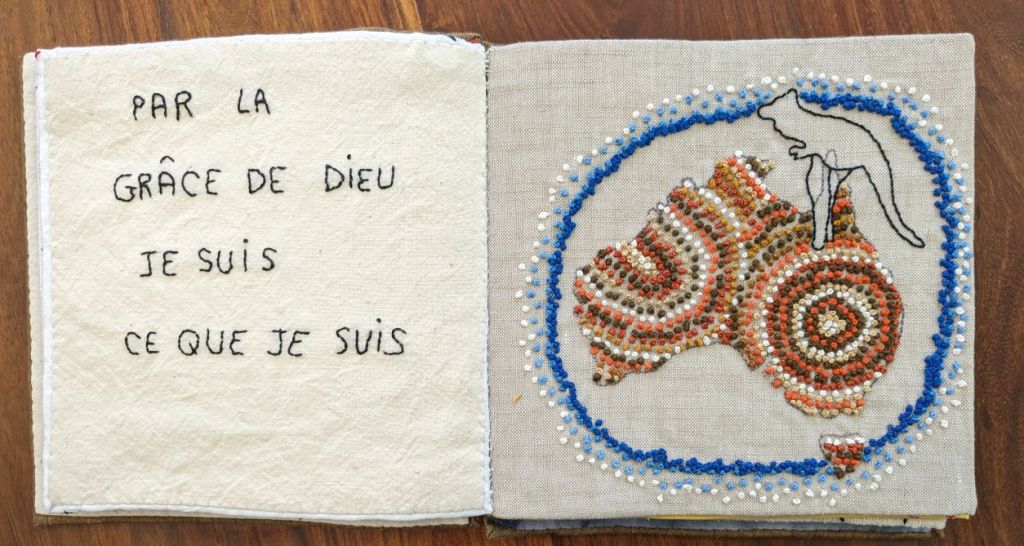 PAR LA
GRÂCE DE DIEU
JE SUIS
CE QUE JE SUIS